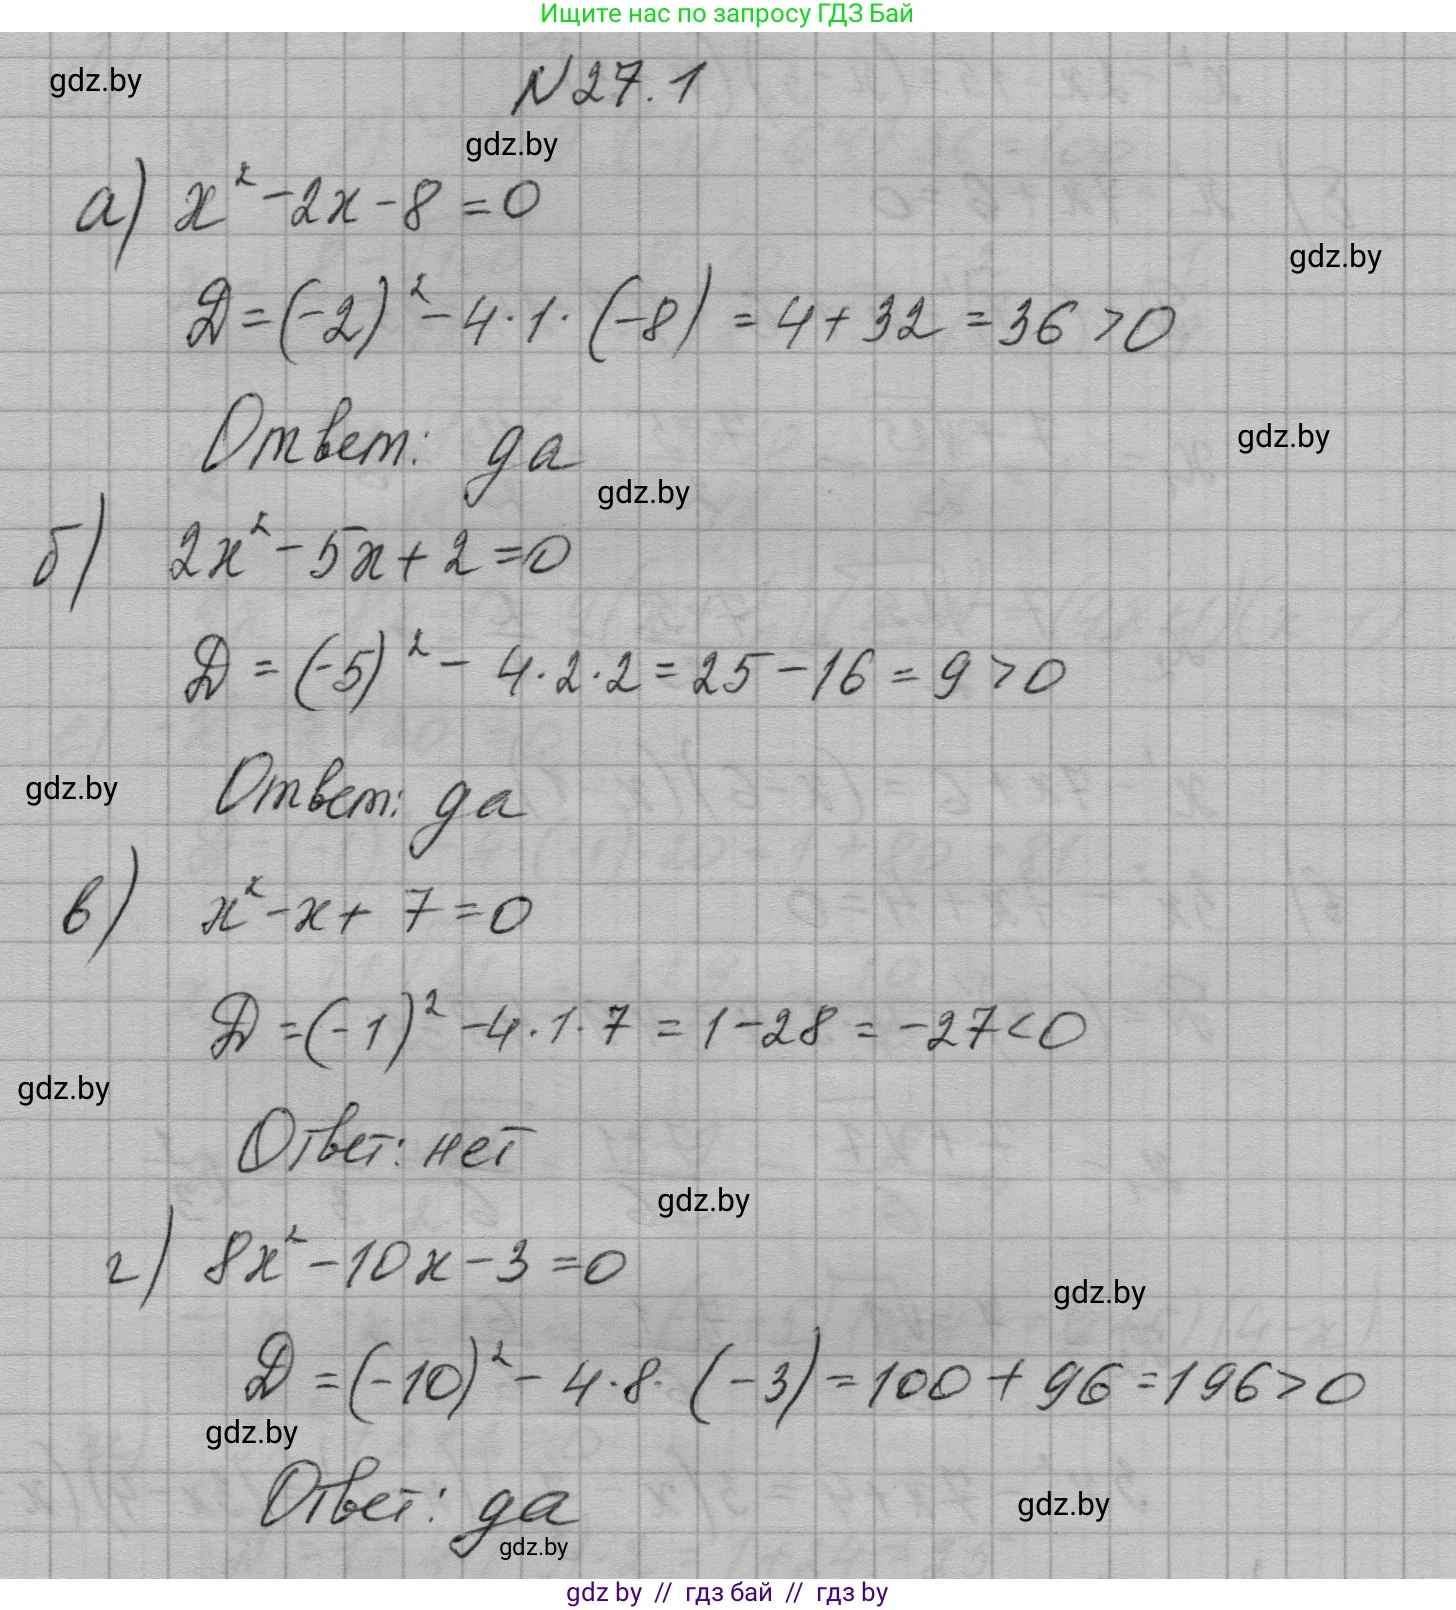 Ищите нас по запросу ГДЗ Бай
gdz.by
N 27.1
gdz.by
а) x² - 2x - 8 = 0
gdz.by
D = (-2)² - 4 · 1 · (-8) = 4 + 32 = 36 > 0
Ответ: да
gdz.by
gdz.by
б) 2x² - 5x + 2 = 0
D = (-5)² - 4 · 2 · 2 = 25 - 16 = 9 > 0
gdz.by
Ответ: да
в) x² - x + 7 = 0
D = (-1)² - 4 · 1 · 7 = 1 - 28 = -27 < 0
gdz.by
Ответ: нет
gdz.by
г) 8x² - 10x - 3 = 0
gdz.by
D = (-10)² - 4 · 8 · (-3) = 100 + 96 = 196 > 0
gdz.by
Ответ: да
gdz.by
gdz.by
gdz by // гдз бай // гдз by